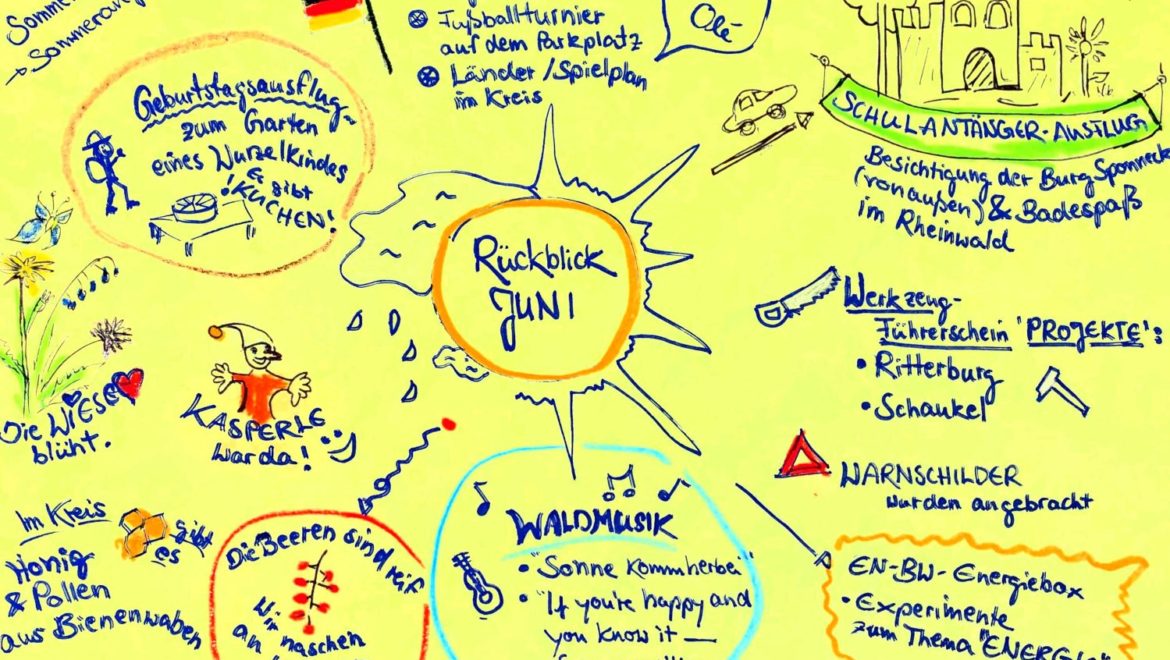 Fußballturnier
auf dem Parkplatz
Länder/Spielplan
im Kreis
Olé
Geburtstagsausflug
zum Garten
eines Wurzelkindes
Es gibt
KUCHEN!
SCHULANFÄNGER-AUSFLUG
Besichtigung der Burg Sponneck
(von außen) & Badespaß
im Rheinwald
Rückblick
JUNI
Werkzeug-
Führerschein 'PROJEKTE':
• Ritterburg
• Schaukel
Die WIESE
blüht.
KASPERLE
war da!
WARNSCHILDER
wurden angebracht
Im Kreis
gibt
es
Honig
& Pollen
aus Bienenwaben
Die Beeren sind reif
Wir naschen
an
WALDMUSIK
• "Sonne komm herbei"
• "If you're happy and
you know it —
EN-BW-Energiebox
• Experimente
zum Thema "ENERGIE"